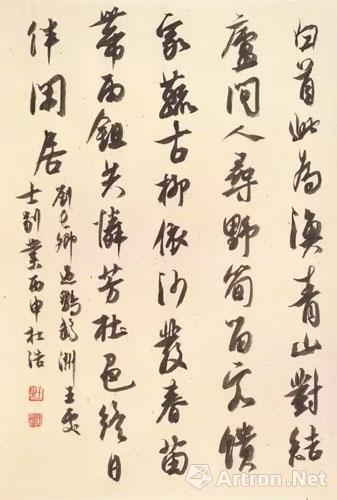 白首此為漁青山對結
廬問人尋野筍留客饋
家蔬古柳依沙發春苗
帶雨鉏共憐芳杜色終日
伴閒居
劉長卿過鸚鵡洲王處
士別業丙申杜
Artron.Net